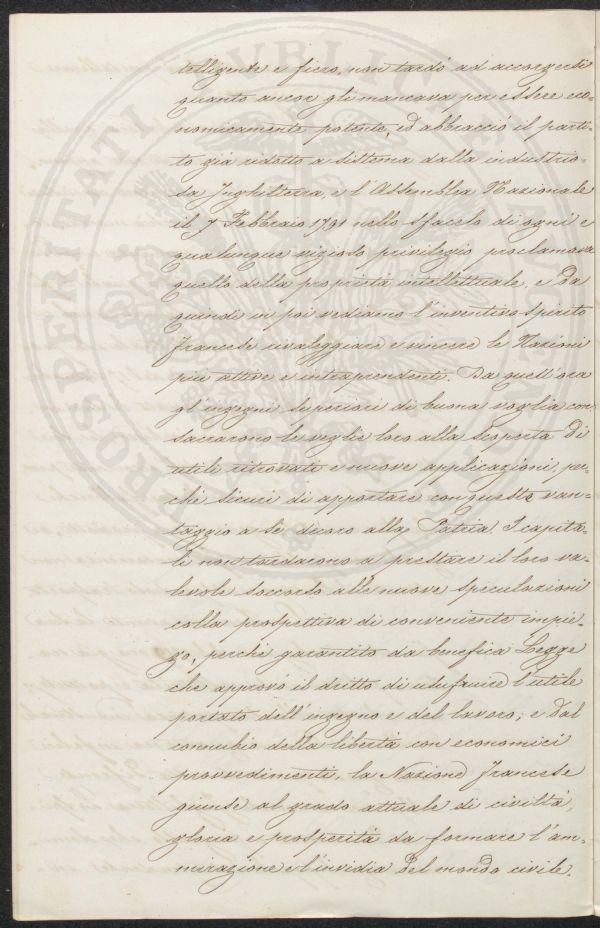 telligente e fiero, non tardò ad accorgersi
quanto ancor gli mancava per essere eco-
nomicamente potente, ed abbracciò il parti-
to già ridotto a sistema dalla industrio-
sa Inghilterra, e l'Assemblea Nazionale
il 7 Febbraio 1791 nello sfacelo di ogni e
qualunque vizioso privilegio proclamava
quello della proprietà intellettuale, e da
quindi in poi vediamo l'inventivo spirito
francese rivaleggiare e vincere le Nazioni
più attive e intraprendenti. Da quell'ora
gl'ingegni superiori di buona voglia con-
sacrarono le veglie loro alla scoperta di
utili ritrovati e nuove applicazioni, per-
chè sicuri di apportare con questo van-
taggio a sè, decoro alla Patria. I capita-
li non tardarono a prestare il loro va-
levole soccorso alle nuove speculazioni
colla prospettiva di conveniente impie-
go, perchè garantito da benefica Legge
che approvò il dritto di usufruire l'utile
portato dell'ingegno e del lavoro; e dal
connubio della libertà con economici
provvedimenti, la Nazione francese
giunse al grado attuale di civiltà,
gloria e prosperità da formare l'am-
mirazione e l'invidia del mondo civile.
PROSPERITATI PVBLICAE